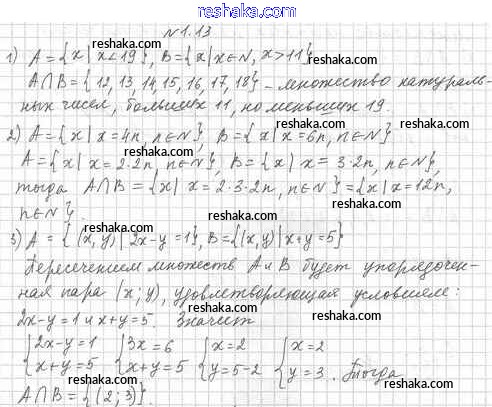 reshaka.com
№1.13
1) A = {x | x < 19}, B = {x | x ∈ N, x > 11}
A∩B = {12, 13, 14, 15, 16, 17, 18} – множество натураль-
ных чисел, больших 11, но меньших 19.
2) A = {x | x = 4n, n∈N}, B = {x | x = 6n, n∈N}
A = {x | x = 2·2n, n∈N}, B = {x | x = 3·2n, n∈N},
тогда A∩B = {x | x = 2·3·2n, n∈N} = {x | x = 12n,
n∈N}.
3) A = {(x, y) | 2x-y = 1}, B = {(x, y) | x+y = 5}
Пересечением множеств A и B будет упорядочен-
ная пара (x; y), удовлетворяющая условиям:
2x-y = 1 и x+y = 5. Значит
{2x-y = 1 {3x = 6 {x = 2 {x = 2
{x+y = 5 {x+y = 5 {y = 5-2 {y = 3. Тогда
A∩B = {(2; 3)}.
reshaka.com